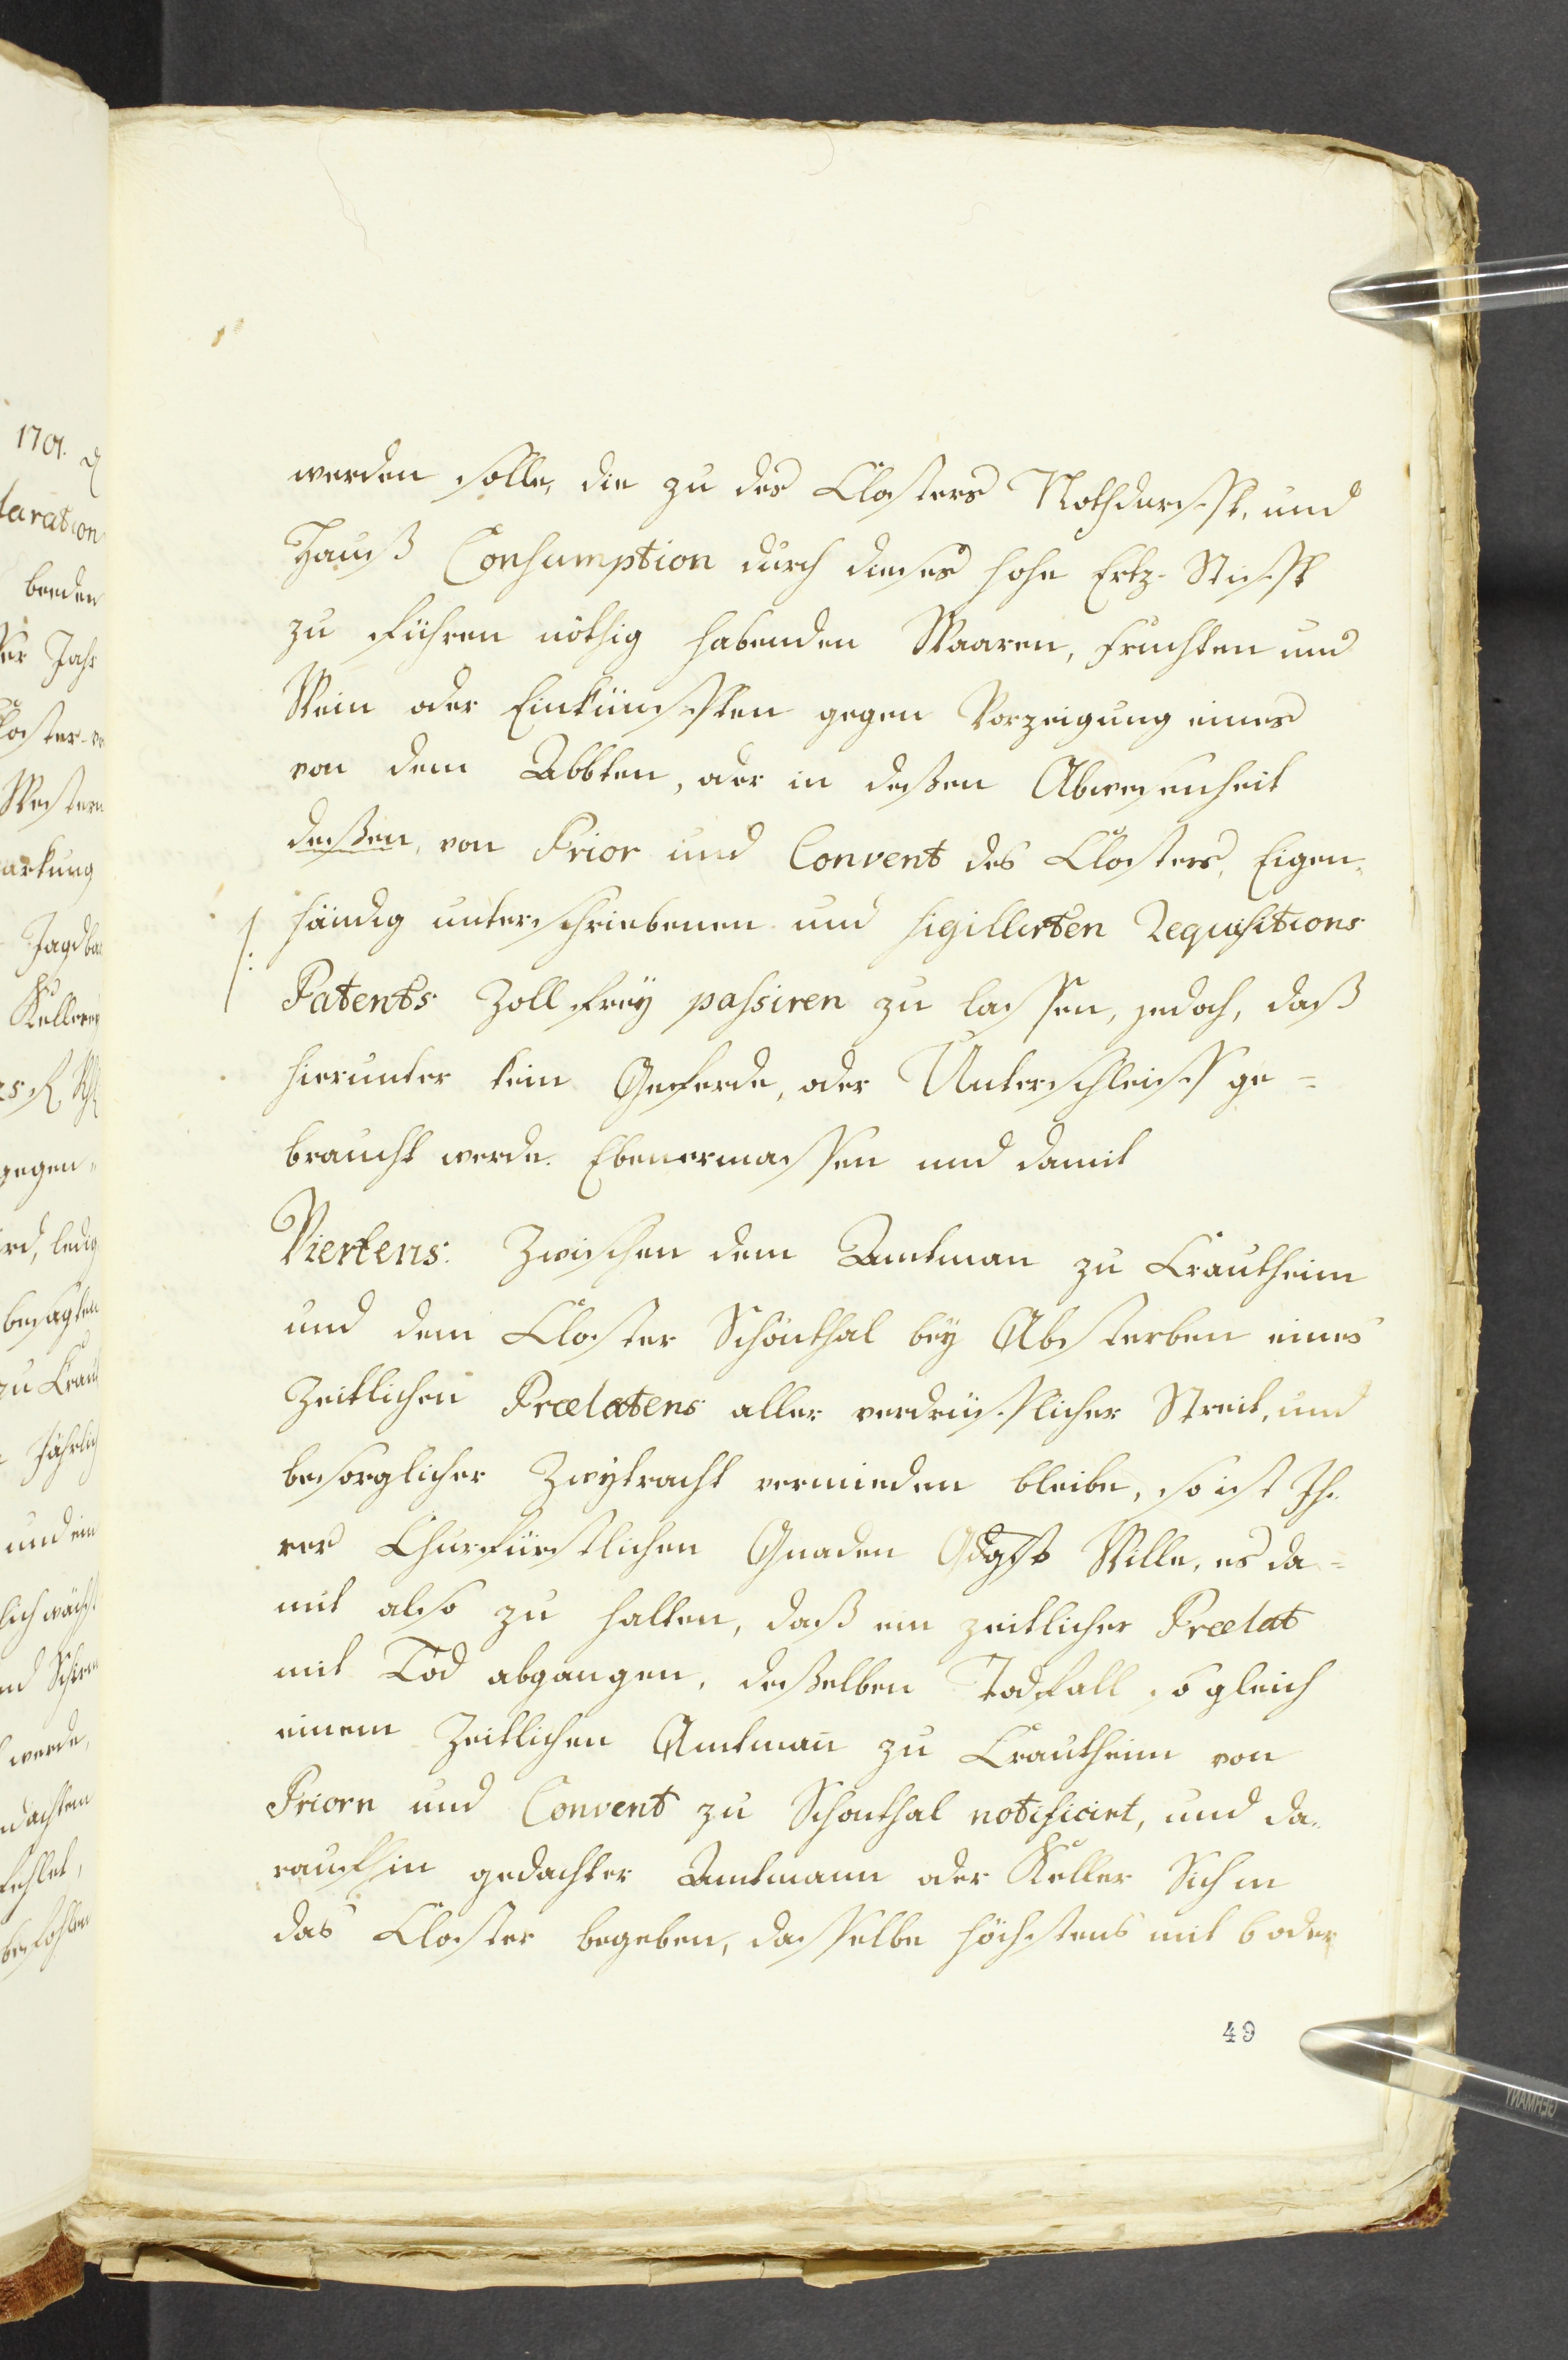 1701.
laration
beeden
Jahr
Western
arkung
Kellerey
gegen„
ird, ledig
besagten
zu Craut
Jährlich
und ein
werde,
dachtem
fehlet,
befohlen
werden solle, die zu des Closters Nothdurfft, und
Hauß Consumption durch dieses hohe Ertz-Stifft
zu führen nöthig habenden Waaren, Fruchten und
Wein oder Einkünfften gegen Vorzeigung eines
von dem Abbten, oder in deßen Abwesenheit
deßen, von Prior und Convent des Closters, Eigen„
händig unterschriebenen und sigillirten Requisitions
Patents Zoll frey passiren zu lassen, jedoch, daß
hierunter kein Geferde, oder Unterschleiff ge=
braucht werde. Ebenermassen und damit
Viertens. Zwischen dem Amtman zu Crautheim
und dem Closter Schönthal bey Absterben eines
Zeitlichen Prælatens aller verdrüsslicher Streit, und
besorglicher Zwytracht vermieden bleibe, so ist Ih„
rer Churfürstlichen Gnaden Gdgst Wille, es da=
mit also zu halten, daß ein zeitlicher Prælat
mit Tod abgangen, deßelben Todfall so gleich
einem Zeitlichen Amtmañ zu Crautheim von
Priorn und Convent zu Schönthal notificirt, und da„
raufhin gedachter Amtmann oder Keller Sich in
das Closter begeben, dasselbe höchstens mit 6 oder
49
GERMANY